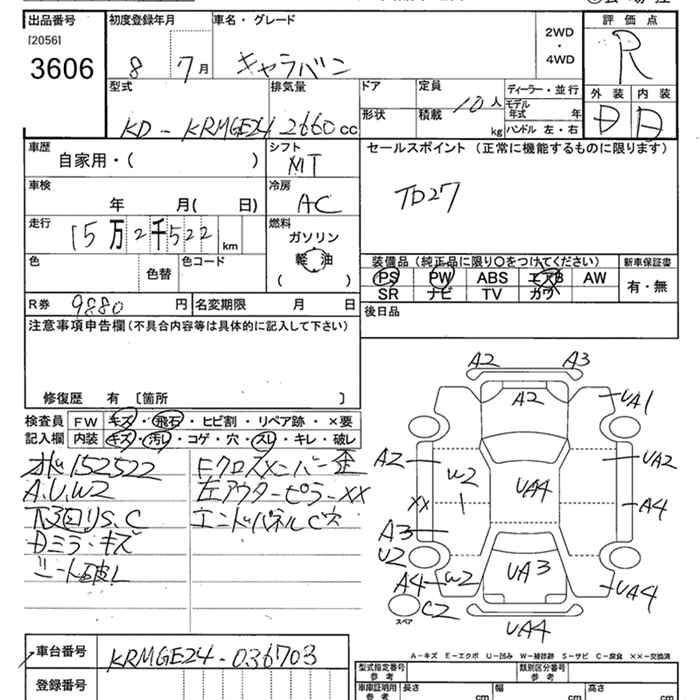 出品番号 初度登録年月 車名・グレード 評価点
[2056] 2WD・4WD
3606 8 7月 キャラバン R
型式 排気量 ドア 定員 10人 ディーラー・並行 外装 内装
KD-KRMGE24 2660cc 形状 積載 kg モデル年式 年 D D
ハンドル 左・右
車歴 シフト セールスポイント (正常に機能するものに限ります)
自家用・( ) MT
車検 冷房 TD27
年 月( 日) AC
走行 燃料
15万2千522km ガソリン
軽油
( )
色 色替 色コード
装備品(純正品に限り○をつけてください) 新車保証書
PS PW ABS エアB AW 有・無
SR ナビ TV カワ
R券 9880円 名変期限 月 日 後日品
注意事項申告欄(不具合内容等は具体的に記入して下さい)
修復歴 有 〔箇所 〕
検査員 FW キズ・飛石・ヒビ割・リペア跡・×要
記入欄 内装 キズ・汚レ・コゲ・穴・スレ・キレ・破レ
オド152522 Fクロスメンバー歪
A.U.W2 左アウターピラーXX
下3回りS.C エンドパネルC穴
Dミラーキズ
シート破レ
A2 A3
A2 UA1
A2 W2 UA4 UA2
XX A4
A3
U2 UA3
A4 W2 UA4
C2 UA4
スペア
A-キズ E-エクボ U-凹み W-補修跡 S-サビ C-腐食 XX-交換済
車台番号 KRMGE24-036703
登録番号
型式指定番号 類別区分番号
参考 参考
車庫証明用 長さ 幅 高さ
cm cm cm